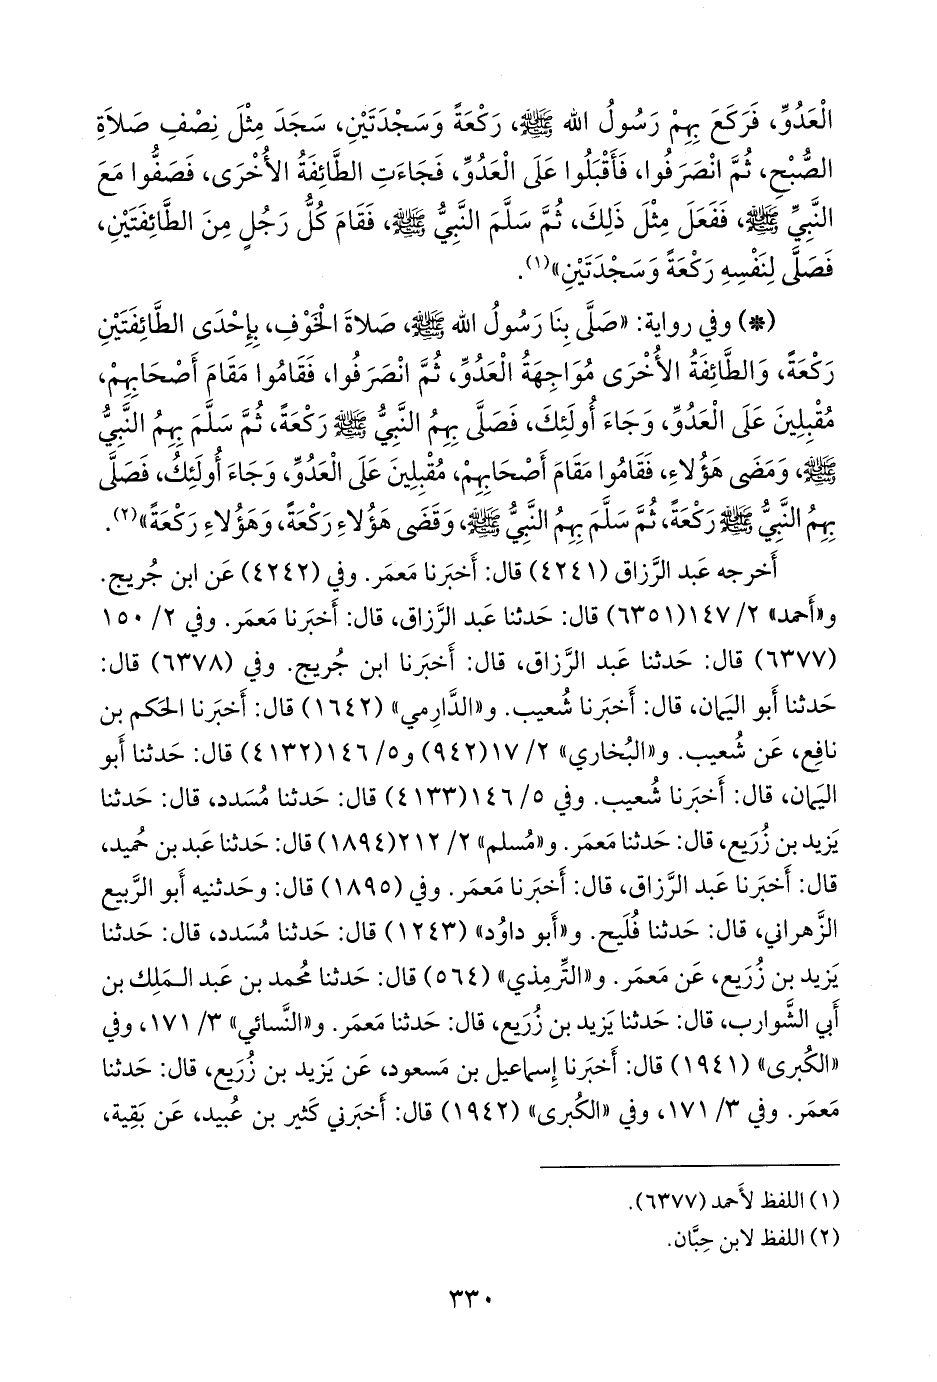 الْعَدُوِّ، فَرَكَعَ بِهِمْ رَسُولُ الله ﷺ، رَكْعَةً وَسَجْدَتَيْنِ، سَجَدَ مِثْلَ نِصْفِ صَلاَةِ
الصُّبْحِ، ثُمَّ انْصَرَفُوا، فَأَقْبَلُوا عَلَى الْعَدُوِّ، فَجَاءَتِ الطَّائِفَةُ الأُخْرَى، فَصَفُّوا مَعَ
النَّبِيِّ ﷺ، فَفَعَلَ مِثْلَ ذَلِكَ، ثُمَّ سَلَّمَ النَّبِيُّ ﷺ، فَقَامَ كُلُّ رَجُلٍ مِنَ الطَّائِفَتَيْنِ،
فَصَلَّى لِنَفْسِهِ رَكْعَةً وَسَجْدَتَيْنِ»(١).
(*) وفي رواية: «صَلَّى بِنَا رَسُولُ الله ﷺ، صَلاَةَ الْخَوْفِ، بِإِحْدَى الطَّائِفَتَيْنِ
رَكْعَةً، وَالطَّائِفَةُ الأُخْرَى مُوَاجِهَةُ الْعَدُوِّ، ثُمَّ انْصَرَفُوا، فَقَامُوا مَقَامَ أَصْحَابِهِمْ،
مُقْبِلِينَ عَلَى الْعَدُوِّ، وَجَاءَ أُولَئِكَ، فَصَلَّى بِهِمُ النَّبِيُّ ﷺ رَكْعَةً، ثُمَّ سَلَّمَ بِهِمُ النَّبِيُّ
ﷺ، وَمَضَى هَؤُلاَءِ، فَقَامُوا مَقَامَ أَصْحَابِهِمْ، مُقْبِلِينَ عَلَى الْعَدُوِّ، وَجَاءَ أُولَئِكَ، فَصَلَّى
بِهِمُ النَّبِيُّ ﷺ رَكْعَةً، ثُمَّ سَلَّمَ بِهِمُ النَّبِيُّ ﷺ، وَقَضَى هَؤُلاَءِ رَكْعَةً، وَهَؤُلاَءِ رَكْعَةً»(٢).
أَخرجه عَبد الرَّزاق (٤٢٤١) قال: أَخبَرنا مَعمَر. وفي (٤٢٤٢) عَن ابن جُريج.
و«أَحمد» ٢/ ١٤٧(٦٣٥١) قال: حَدثنا عَبد الرَّزاق، قال: أَخبَرنا مَعمَر. وفي ٢/ ١٥٠
(٦٣٧٧) قال: حَدثنا عَبد الرَّزاق، قال: أَخبَرنا ابن جُريج. وفي (٦٣٧٨) قال:
حَدثنا أَبو اليَمان، قال: أَخبَرنا شُعيب. و«الدَّارِمي» (١٦٤٢) قال: أَخبَرنا الحَكم بن
نافِع، عَن شُعيب. و«البُخاري» ٢/ ١٧(٩٤٢) و٥/ ١٤٦(٤١٣٢) قال: حَدثنا أَبو
اليَمان، قال: أَخبَرنا شُعيب. وفي ٥/ ١٤٦(٤١٣٣) قال: حَدثنا مُسَدد، قال: حَدثنا
يَزيد بن زُرَيع، قال: حَدثنا مَعمَر. و«مُسلم» ٢/ ٢١٢(١٨٩٤) قال: حَدثنا عَبد بن حُميد،
قال: أَخبَرنا عَبد الرَّزاق، قال: أَخبَرنا مَعمَر. وفي (١٨٩٥) قال: وحَدثنيه أَبو الرَّبيع
الزَّهراني، قال: حَدثنا فُلَيح. و«أَبو داوُد» (١٢٤٣) قال: حَدثنا مُسَدد، قال: حَدثنا
يَزيد بن زُرَيع، عَن مَعمَر. و«التِّرمِذي» (٥٦٤) قال: حَدثنا مُحمد بن عَبد المَلِك بن
أَبي الشَّوارب، قال: حَدثنا يَزيد بن زُرَيع، قال: حَدثنا مَعمَر. و«النَّسائي» ٣/ ١٧١، وفي
«الكُبرى» (١٩٤١) قال: أَخبَرنا إِسماعيل بن مَسعود، عَن يَزيد بن زُرَيع، قال: حَدثنا
مَعمَر. وفي ٣/ ١٧١، وفي «الكُبرى» (١٩٤٢) قال: أَخبَرني كَثير بن عُبيد، عَن بَقِية،
(١) اللفظ لأَحمد (٦٣٧٧).
(٢) اللفظ لابن حِبَّان.
٣٣٠